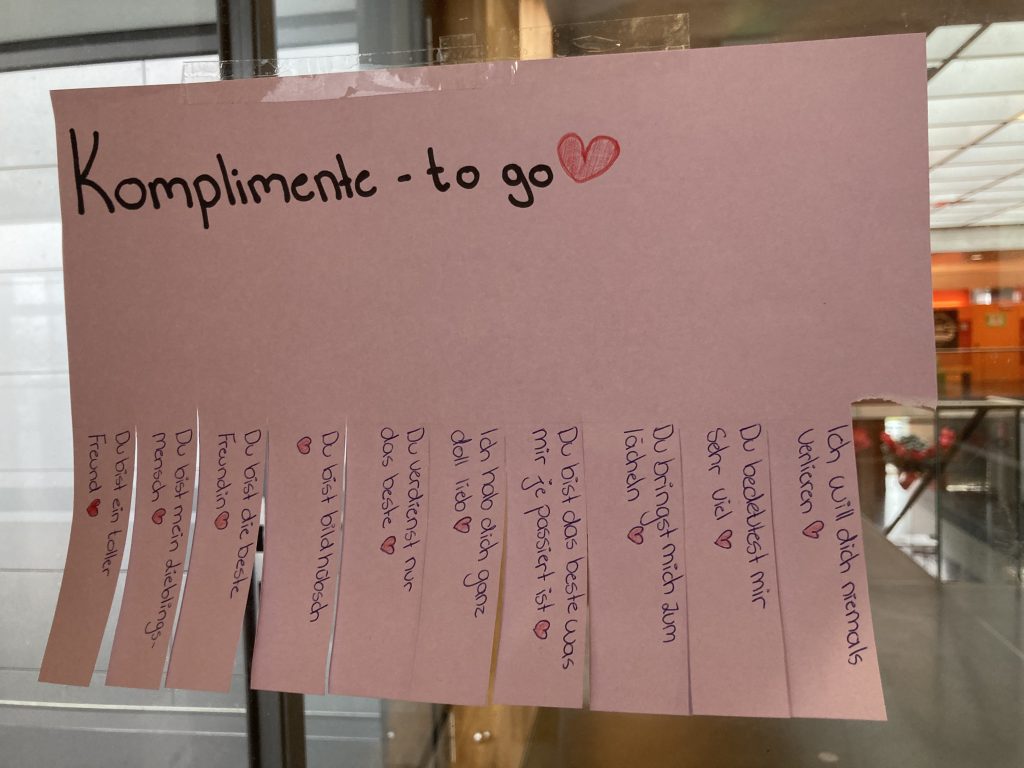 Komplimente - to go
Du bist ein toller
Freund
Du bist mein dieblings-
mensch
Du bist die beste
Freundin
Du bist bildhübsch
Du verdienst nur
das beste
Ich hab dich ganz
doll lieb
Du bist das beste was
mir je passiert ist
Du bringst mich zum
lächeln
Du bedeutest mir
Sehr viel
Ich will dich niemals
verlieren